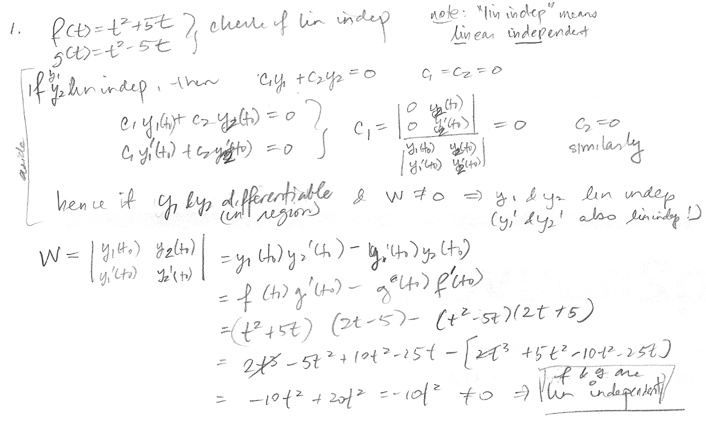 1. f(t) = t²+5t } check if lin indep
g(t) = t²-5t
note: "lin indep" means
linear independent
aside
If y₁ y₂ lin indep, then c₁y₁ + c₂y₂ = 0 c₁ = c₂ = 0
c₁y₁(t₀) + c₂y₂(t₀) = 0
c₁y₁'(t₀) + c₂y₂'(t₀) = 0
c₁ = |0 y₂(t₀); 0 y₂'(t₀)| / |y₁(t₀) y₂(t₀); y₁'(t₀) y₂'(t₀)| = 0 c₂ = 0 similarly
hence if y₁ & y₂ differentiable & W ≠ 0 ⇒ y₁ & y₂ lin indep
(in region) (y₁' & y₂' also lin indep!)
W = |y₁(t₀) y₂(t₀); y₁'(t₀) y₂'(t₀)| = y₁(t₀)y₂'(t₀) - y₁'(t₀)y₂(t₀)
= f(t₀)g'(t₀) - g(t₀)f'(t₀)
= (t²+5t)(2t-5) - (t²-5t)(2t+5)
= 2t³ - 5t² + 10t² - 25t - [2t³ + 5t² - 10t² - 25t]
= -10t² + 20t² = -10t² ≠ 0 ⇒ f & g are
lin independent